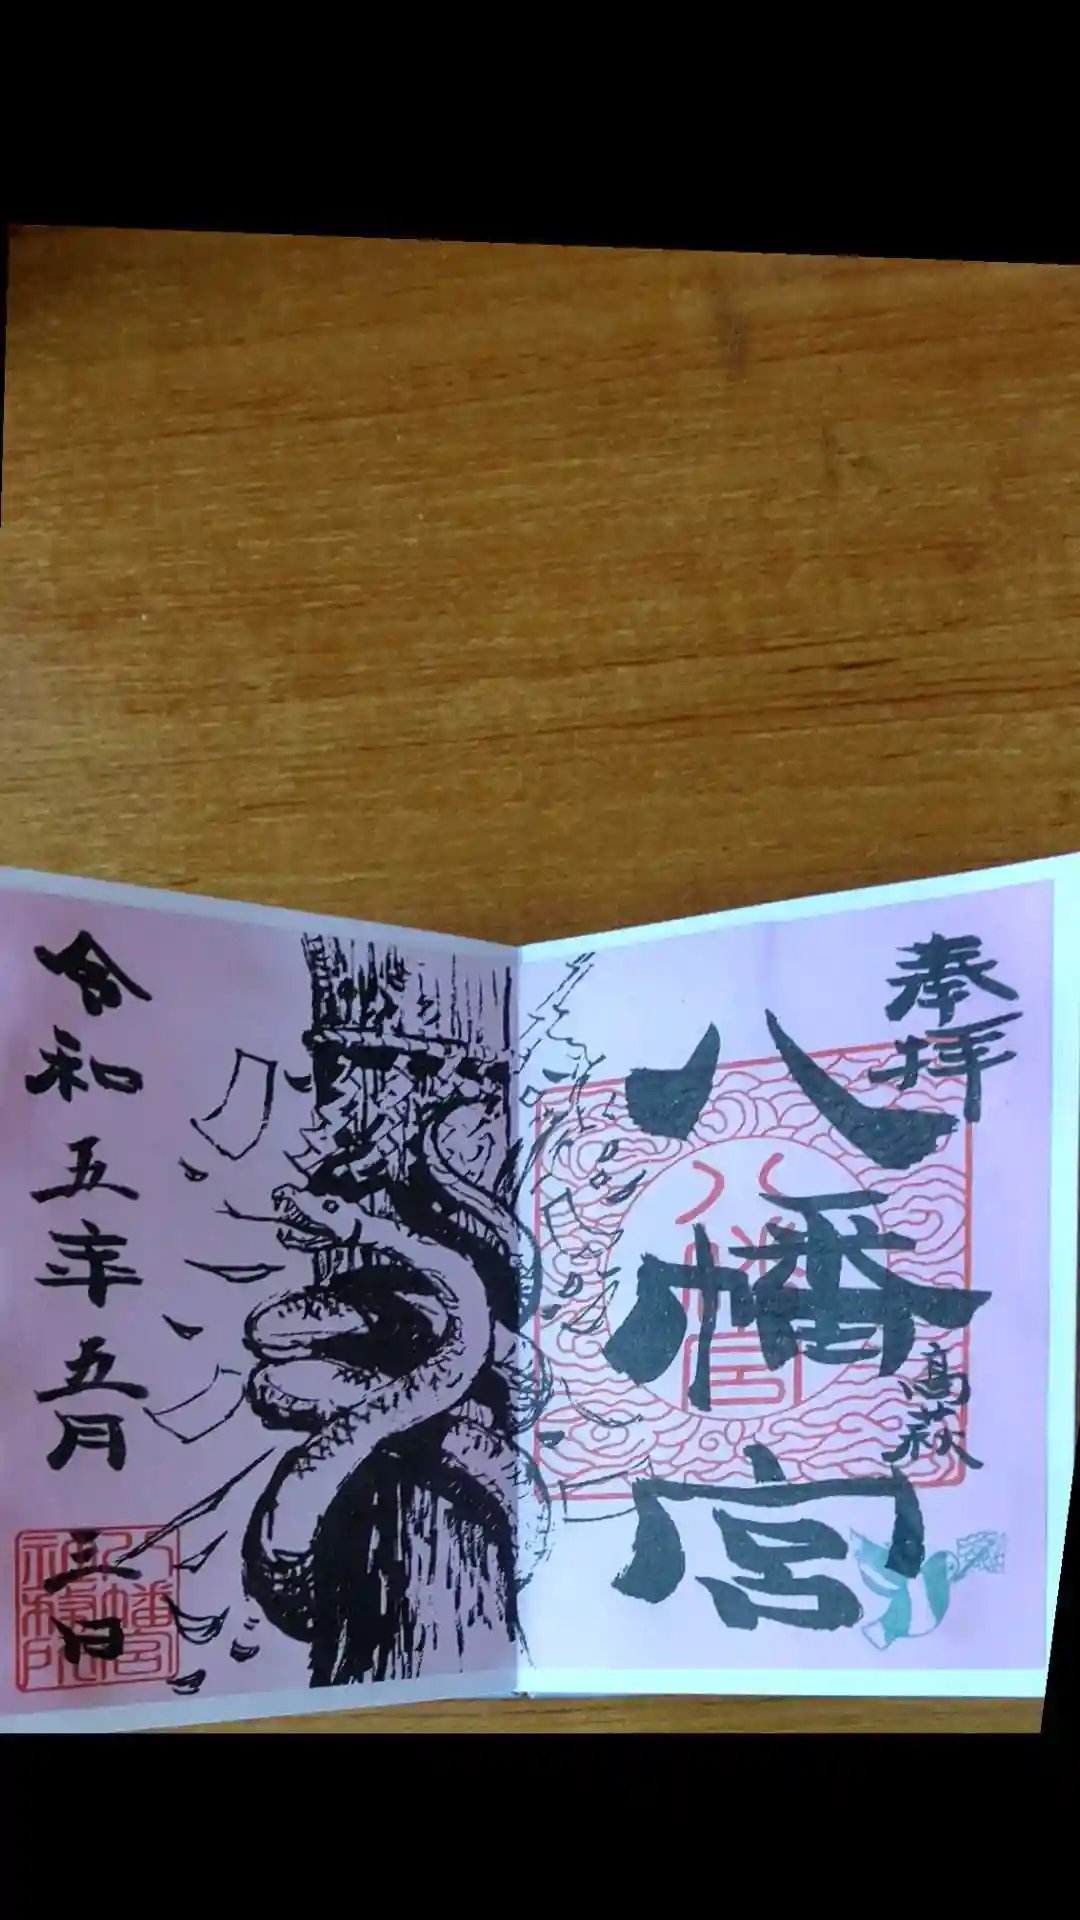 奉拝
八幡宮
高萩
八幡宮
令和五年五月三日
八幡宮